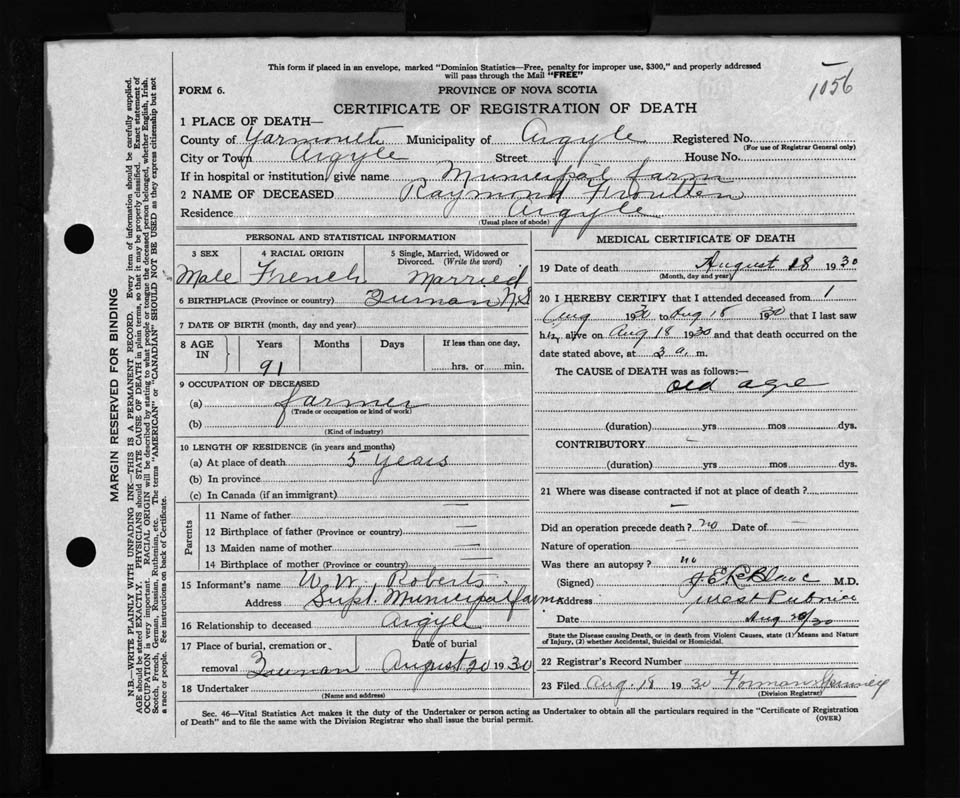 This form if placed in an envelope, marked "Dominion Statistics—Free, penalty for improper use, $300," and properly addressed
will pass through the Mail "FREE"
1056
FORM 6.
PROVINCE OF NOVA SCOTIA
CERTIFICATE OF REGISTRATION OF DEATH
1 PLACE OF DEATH—
County of Yarmouth Municipality of Argyle Registered No.
(For use of Registrar General only)
City or Town Argyle Street House No.
If in hospital or institution, give name Municipal farm
2 NAME OF DECEASED Raymond
Residence Argyle
(Usual place of abode)
PERSONAL AND STATISTICAL INFORMATION
3 SEX 4 RACIAL ORIGIN 5 Single, Married, Widowed or
Divorced. (Write the word)
Male French Married
6 BIRTHPLACE (Province or country) N.S
7 DATE OF BIRTH (month, day and year)
8 AGE IN Years Months Days If less than one day,
91 hrs. or min.
9 OCCUPATION OF DECEASED
(a) farmer
(Trade or occupation or kind of work)
(b)
(Kind of industry)
10 LENGTH OF RESIDENCE (in years and months)
(a) At place of death 5 years
(b) In province
(c) In Canada (if an immigrant)
Parents
11 Name of father —
12 Birthplace of father (Province or country) —
13 Maiden name of mother —
14 Birthplace of mother (Province or country) —
15 Informant's name W. W. Roberts
Address Supt. Municipal farm
16 Relationship to deceased Argyle
17 Place of burial, cremation or Date of burial
removal August 20 1930
18 Undertaker
(Name and address)
MEDICAL CERTIFICATE OF DEATH
19 Date of death August 18 1930
(Month, day and year)
20 I HEREBY CERTIFY that I attended deceased from 1
Aug 1930 to Aug 18 1930 that I last saw
him alive on Aug 18 1930 and that death occurred on the
date stated above, at 3 a. m.
The CAUSE of DEATH was as follows:—
old age
(duration) yrs mos dys.
CONTRIBUTORY —
(duration) yrs mos dys.
21 Where was disease contracted if not at place of death?
—
Did an operation precede death? no Date of —
Nature of operation —
Was there an autopsy? no
(Signed) LeBlanc M.D.
Address West Pubnico
Date Aug 20/30
State the Disease causing Death, or in death from Violent Causes, state (1) Means and Nature
of Injury, (2) whether Accidental, Suicidal or Homicidal.
22 Registrar's Record Number
23 Filed Aug. 19 1930 Forman
(Division Registrar)
Sec. 46—Vital Statistics Act makes it the duty of the Undertaker or person acting as Undertaker to obtain all the particulars required in the "Certificate of Registration
of Death" and to file the same with the Division Registrar who shall issue the burial permit.
(OVER)
MARGIN RESERVED FOR BINDING
N.B.—WRITE PLAINLY WITH UNFADING INK—THIS IS A PERMANENT RECORD. Every item of information should be carefully supplied.
AGE should be stated EXACTLY. PHYSICIANS should STATE CAUSE OF DEATH in plain terms, so that it may be properly classified. Exact statement of
OCCUPATION is very important. RACIAL ORIGIN will be described by stating to what people or tongue the deceased person belonged, whether English, Irish,
Scotch, French, German, Russian, Ruthenian, etc. The terms "AMERICAN" or "CANADIAN" SHOULD NOT BE USED as they express citizenship but not
a race or people. See instructions on back of Certificate.